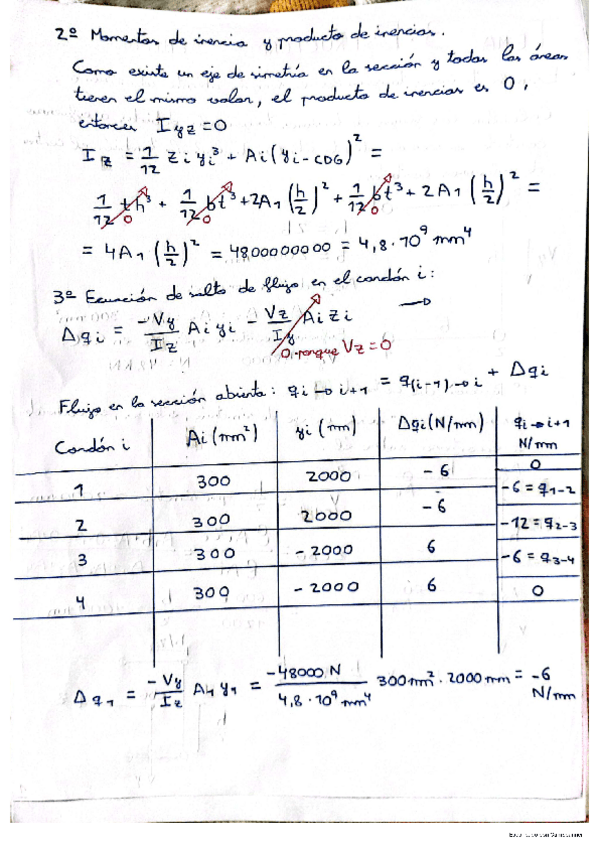 2º Momentos de inercia y producto de inercias.
Como existe un eje de simetría en la sección y todas las áreas
tienen el mismo valor, el producto de inercias es 0,
entonces I_yz = 0
I_z = 1/12 z_i y_i³ + A_i (y_i - CDG)² =
1/12 th³ + 1/12 bt³ + 2A₁ (h/2)² + 1/12 bt³ + 2A₁ (h/2)² =
0 0 0
= 4A₁ (h/2)² = 4800000000 = 4,8 · 10⁹ mm⁴
3º Ecuación de salto de flujo en el cordón i:
Δq_i = -V_y/I_z A_i y_i - V_z/I_y A_i z_i →
0 porque V_z = 0
Flujo en la sección abierta: q_i→i+1 = q_(i-1)→i + Δq_i
Cordón i A_i (mm²) y_i (mm) Δq_i (N/mm) q_i→i+1 N/mm
0
1 300 2000 -6
-6 = q₁₋₂
2 300 2000 -6
-12 = q₂₋₃
3 300 -2000 6
-6 = q₃₋₄
4 300 -2000 6
0
Δq₁ = -V_y/I_z A₁ y₁ = -48000 N / 4,8 · 10⁹ mm⁴ 300 mm² · 2000 mm = -6 N/mm